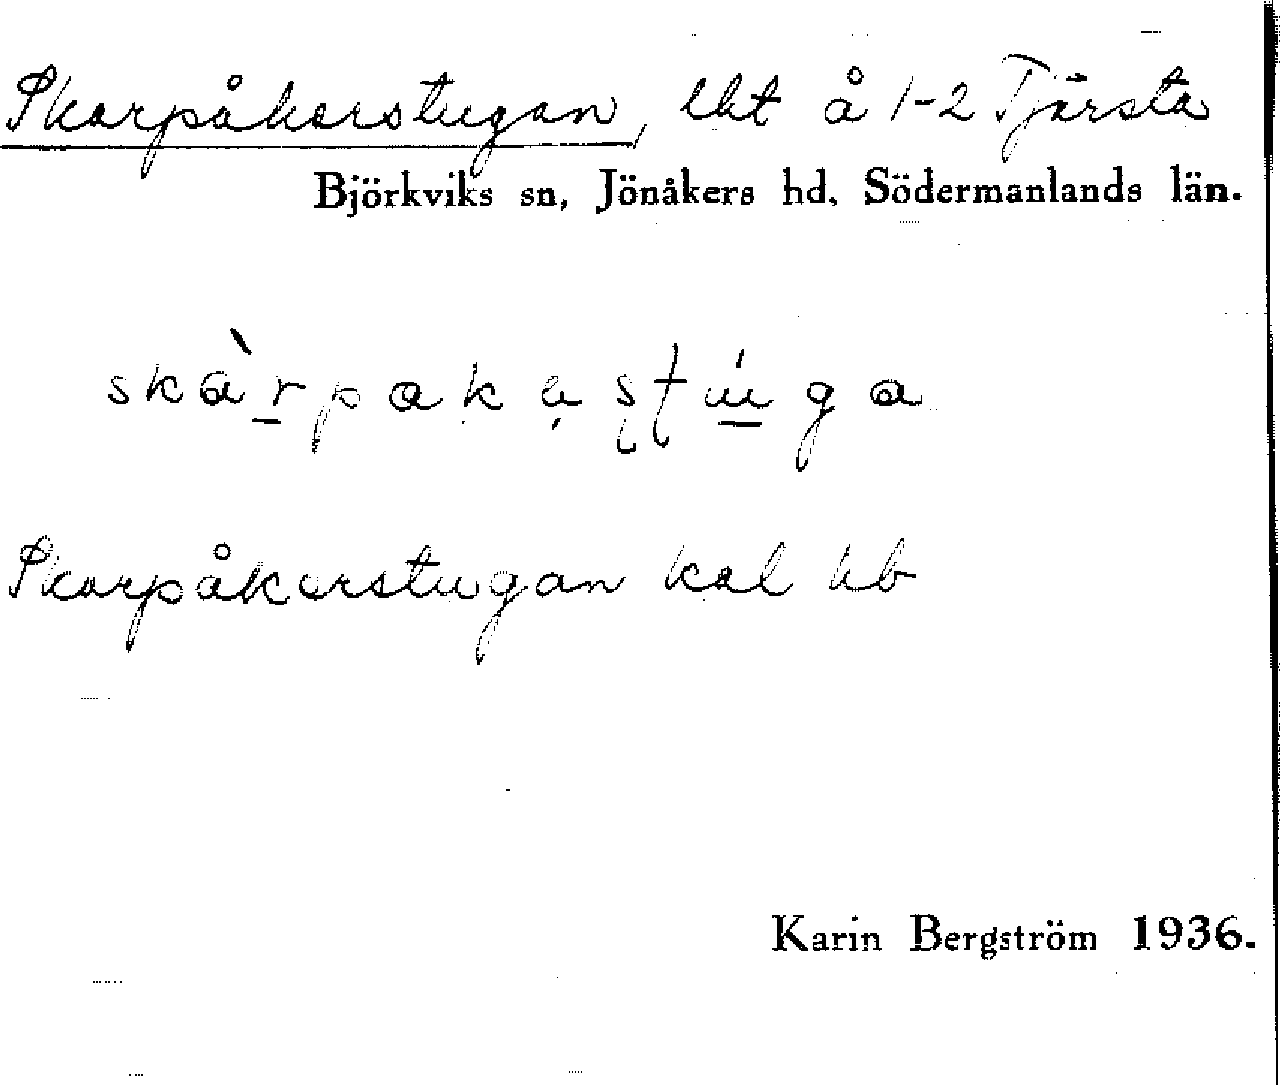 Skarpåkerstugan, lht å 1-2 Tjärsta
Björkviks sn, Jönåkers hd, Södermanlands län.
Skarpåkerstugan kal hb
Karin Bergström 1936.